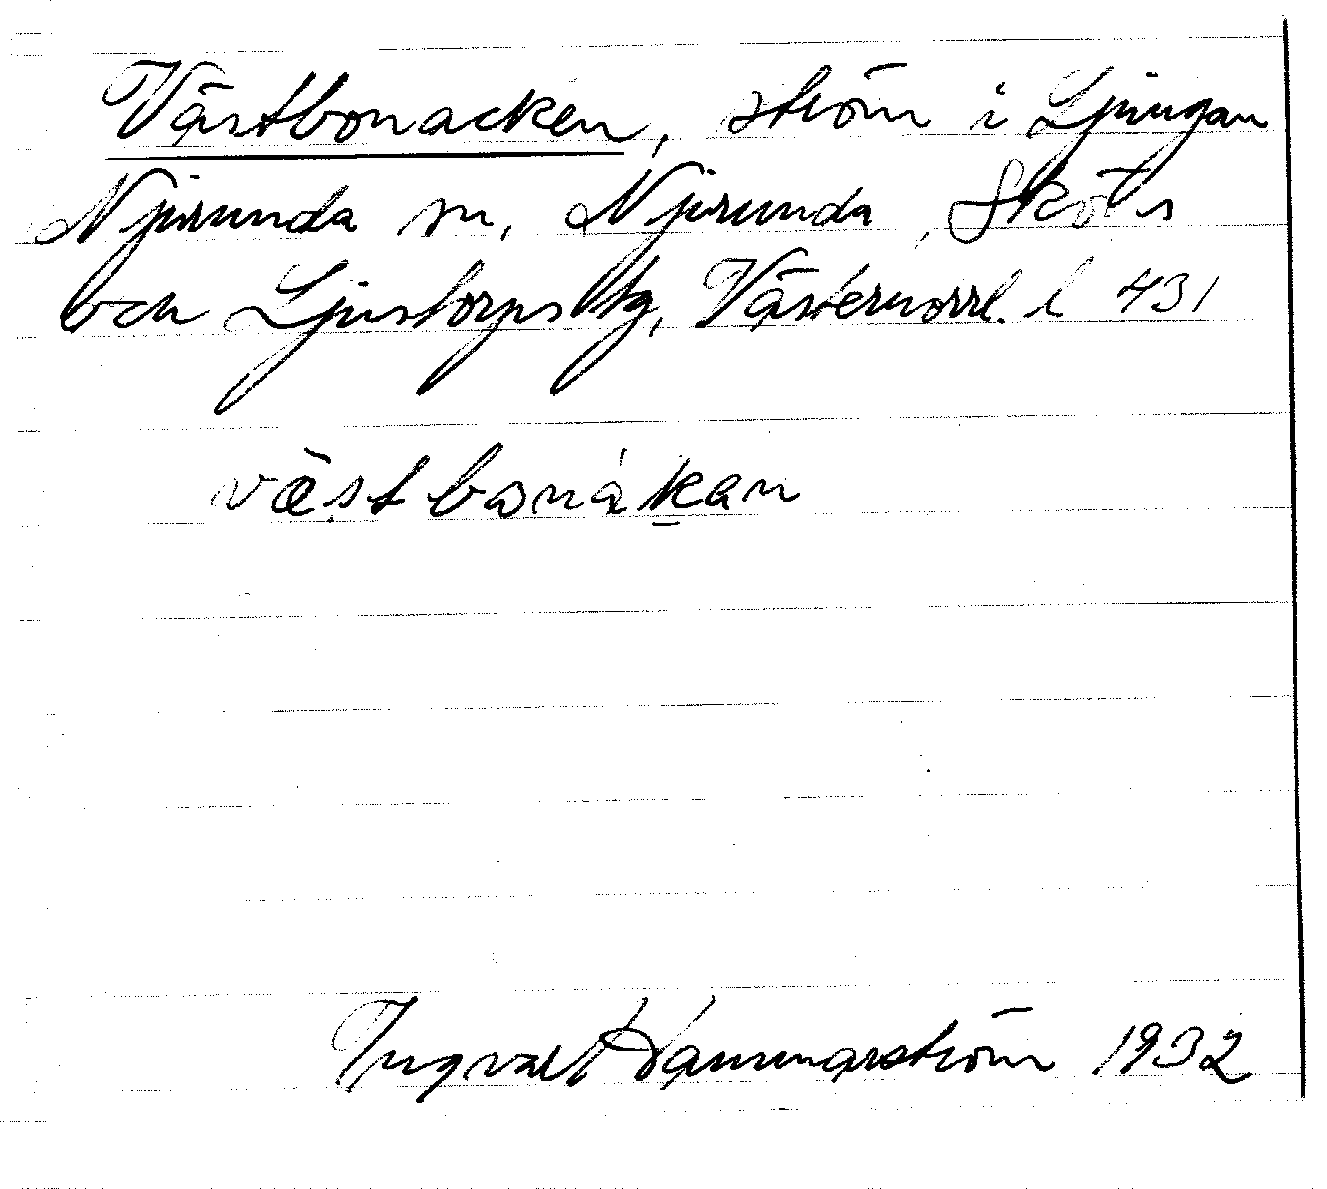 Västbonacken, ström i Ljungan
Njurunda sn, Njurunda, Sköts
och Ljustorps tg, Västernorrl. l 431
västbonákan
Ingvart Hammarström 1932